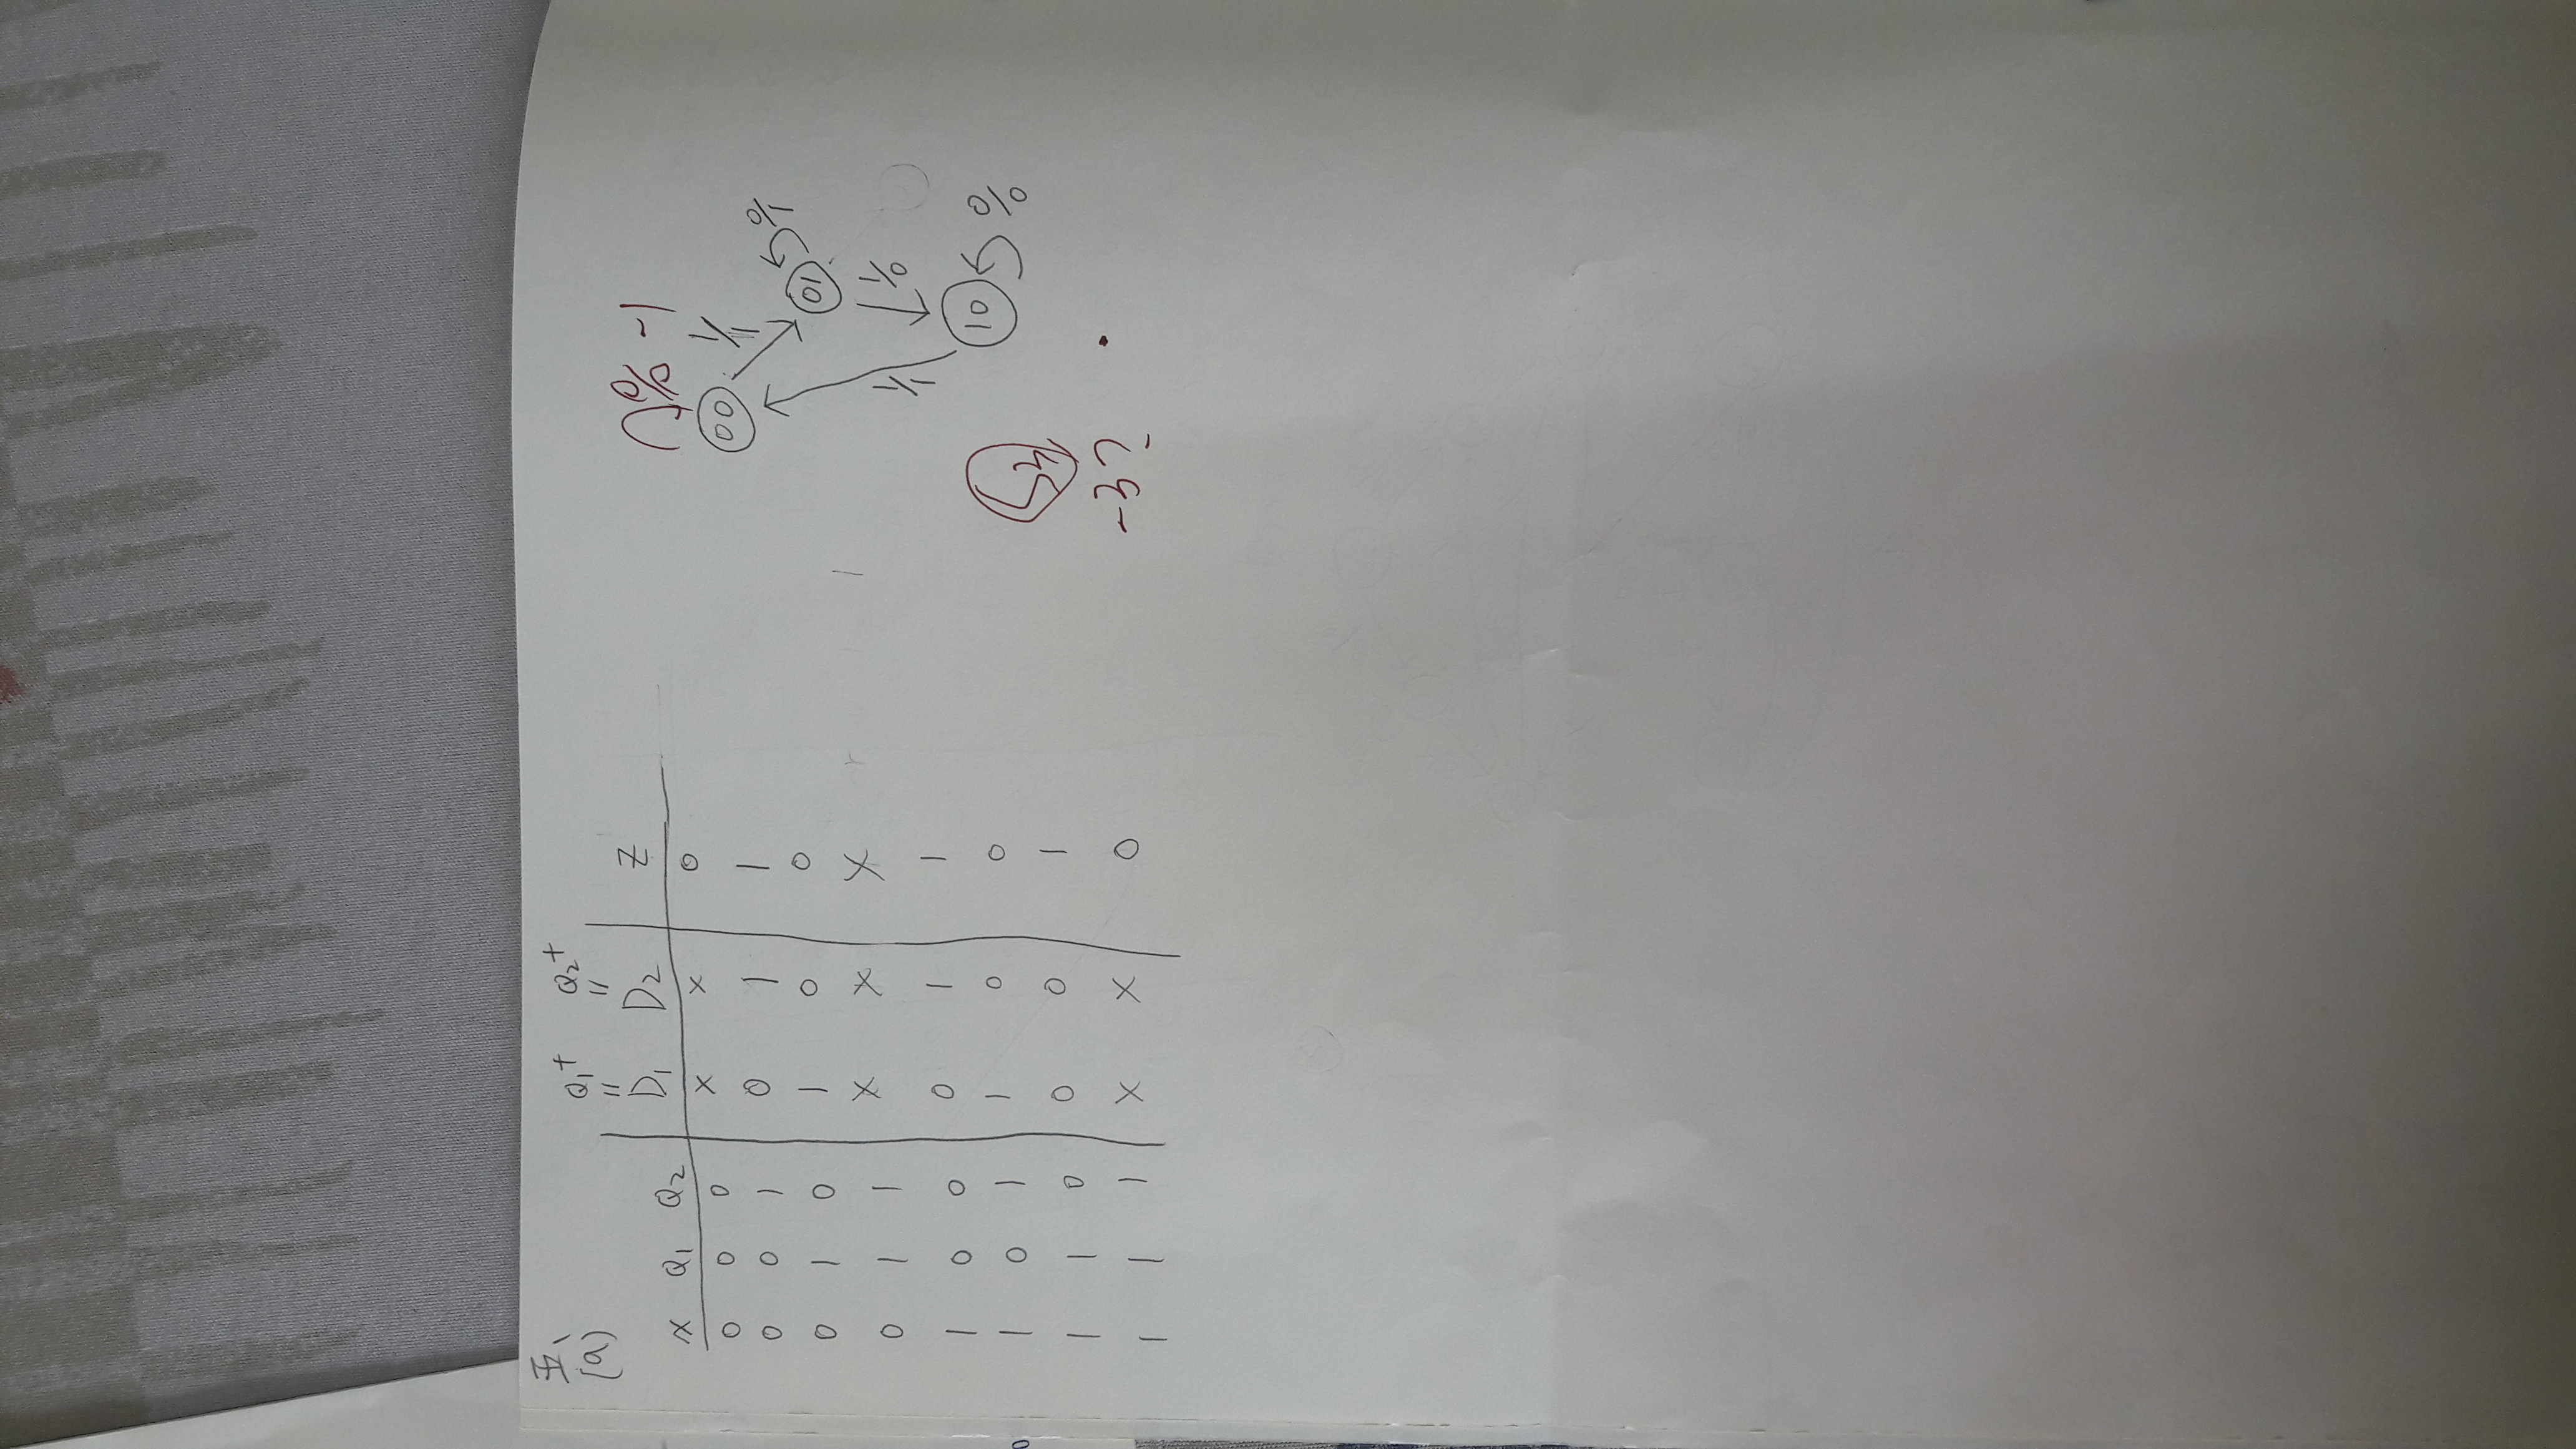 五、
(a)
Q1+ Q2+
" "
X Q1 Q2 D1 D2 Z
0 0 0 x x 0
0 0 1 0 1 1
0 1 0 1 0 0
0 1 1 x x x
1 0 0 0 1 1
1 0 1 1 0 0
1 1 0 0 0 1
1 1 1 x x 0
0/0 -1
00 1/1
01 0/1
1/0
1/1
10 0/0
S3
-3?